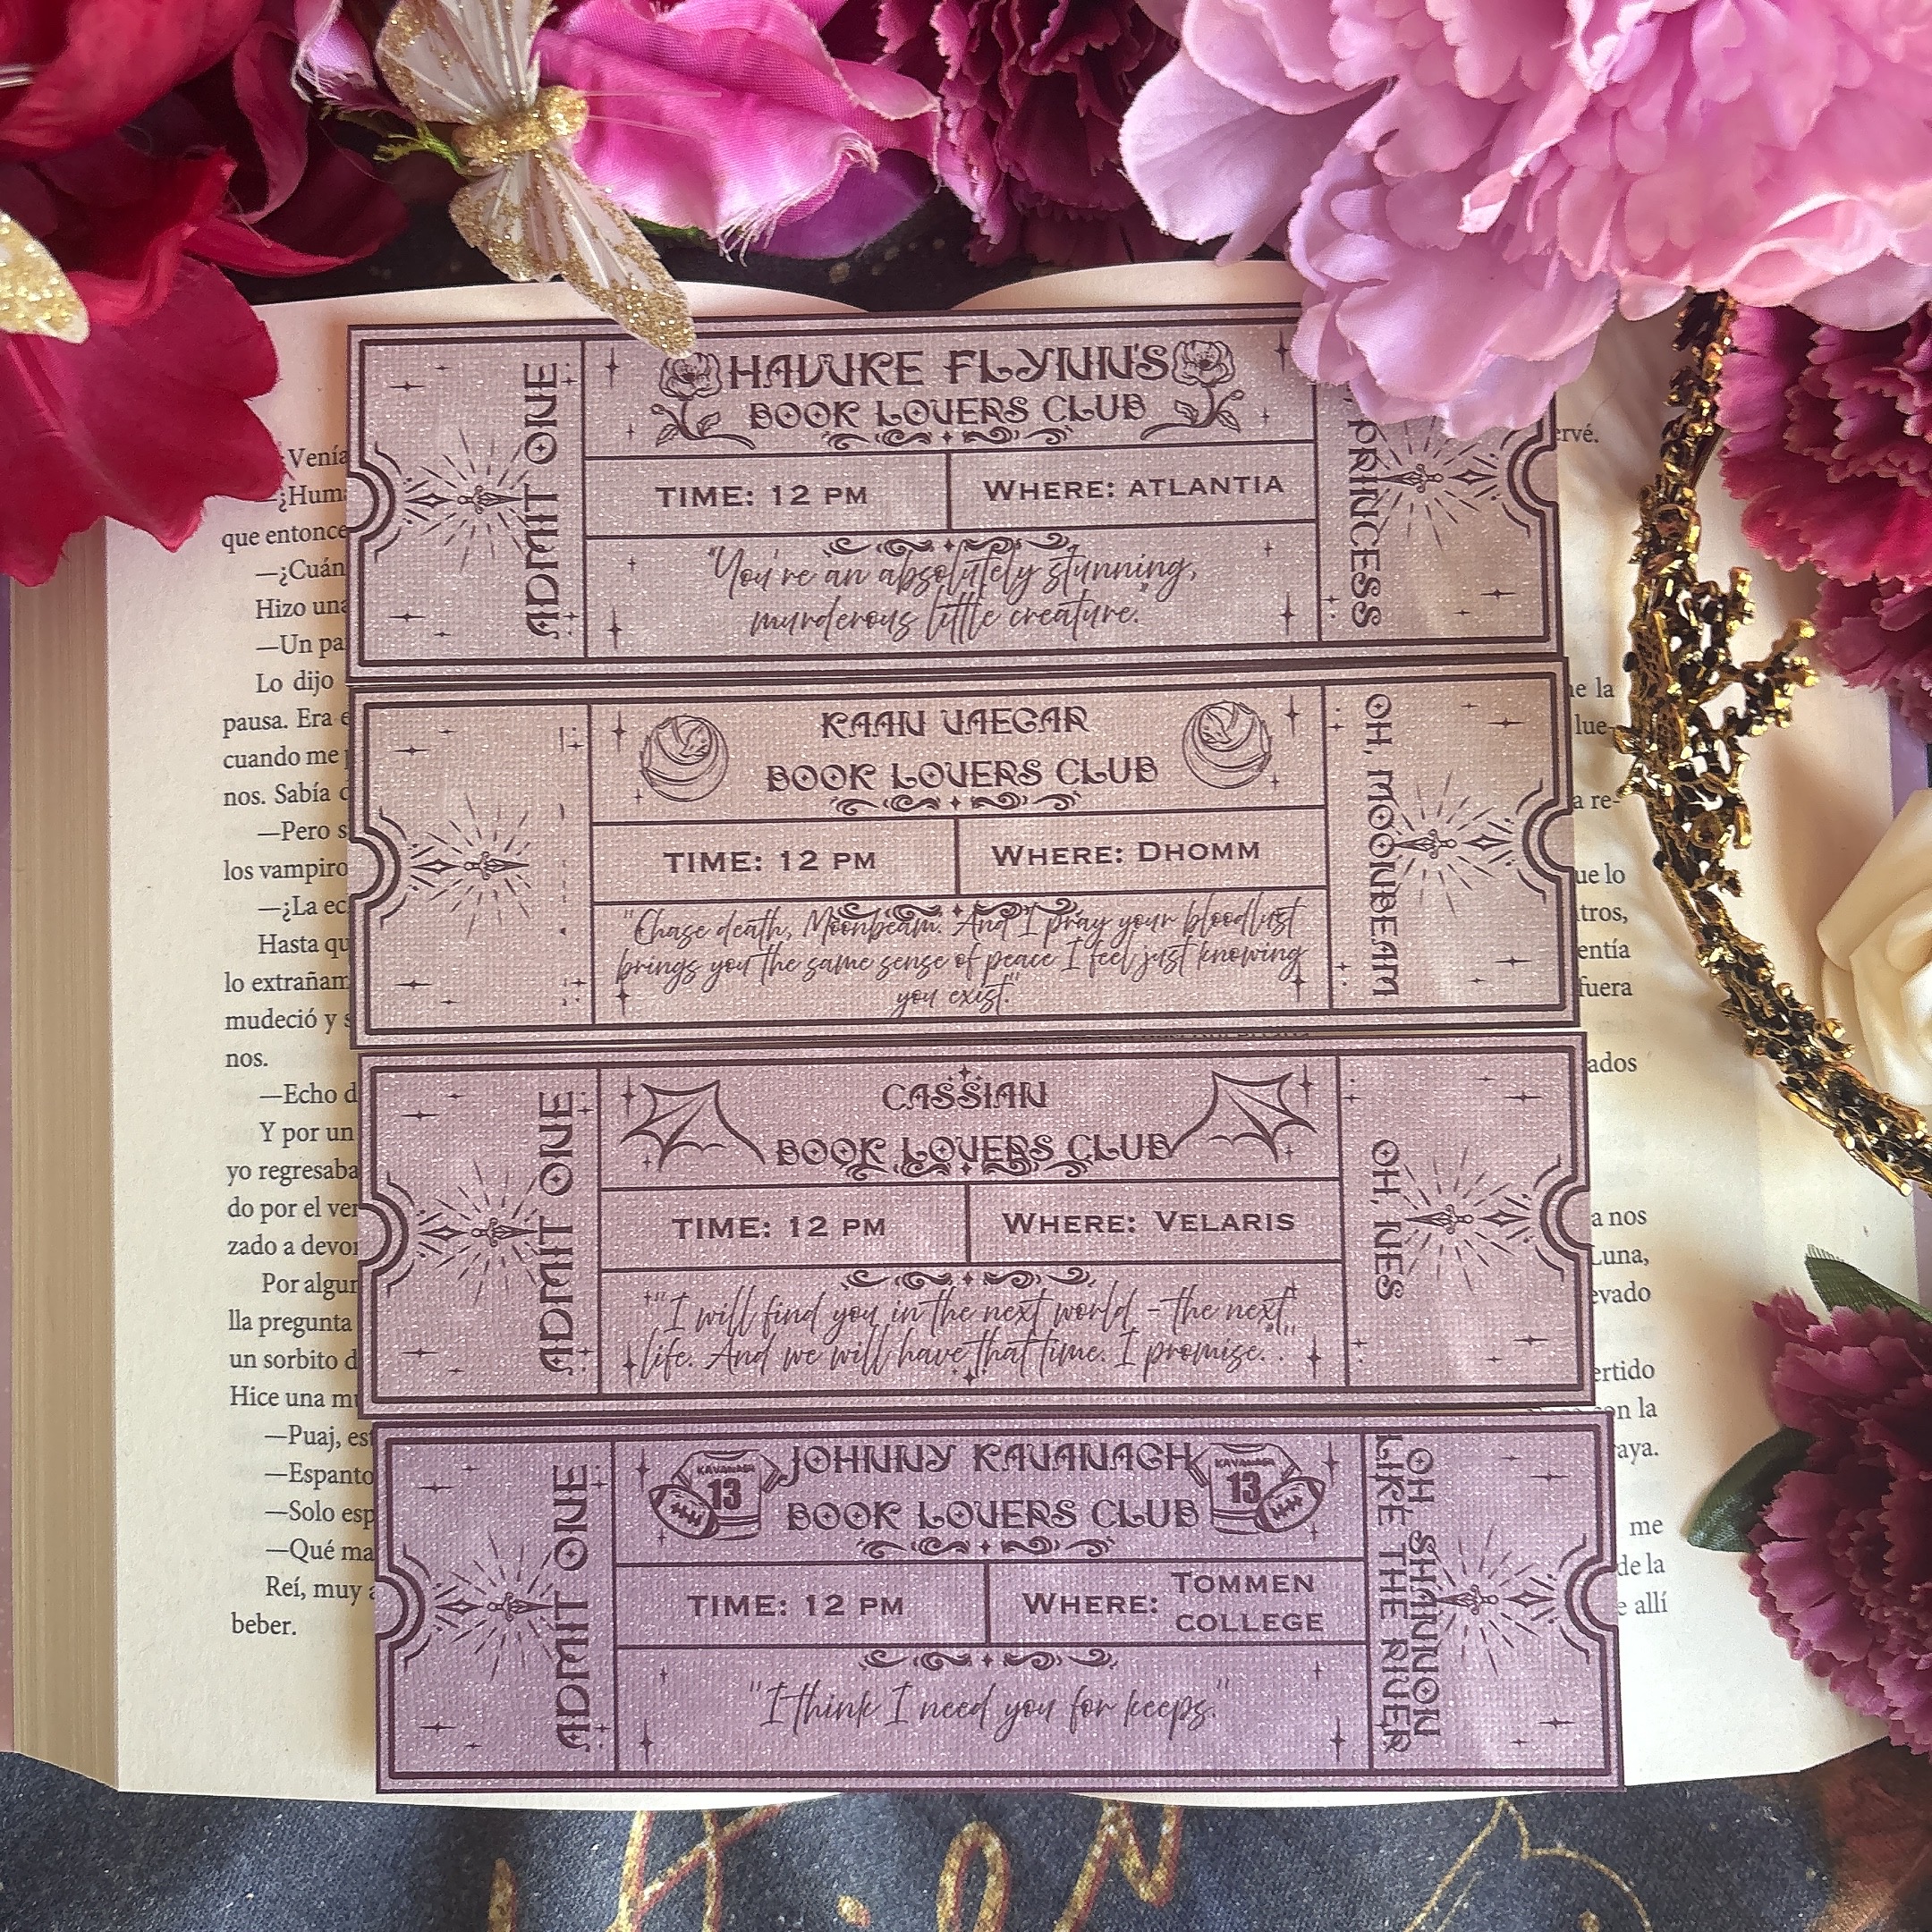 ADMIT ONE
HAWKE FLYNN'S
BOOK LOVERS CLUB
TIME: 12 PM
WHERE: ATLANTIA
"You're an absolutely stunning,
murderous little creature."
PRINCESS
KAAN VAEGAR
BOOK LOVERS CLUB
TIME: 12 PM
WHERE: DHOMM
"Chase death, Moonbeam. And I pray your bloodlust
brings you the same sense of peace I feel just knowing
you exist."
OH, MOONBEAM
ADMIT ONE
CASSIAN
BOOK LOVERS CLUB
TIME: 12 PM
WHERE: VELARIS
"I will find you in the next world - the next
life. And we will have that time. I promise."
OH, NES
ADMIT ONE
JOHNNY KAVANAGH
KAVANAGH
13
KAVANAGH
13
BOOK LOVERS CLUB
TIME: 12 PM
WHERE: TOMMEN
COLLEGE
"I think I need you for keeps."
OH, SHANNON
LIKE THE RIVER
Venía
que
—¿Cuán
Hizo
—Un
Lo dijo
pausa. Era
cuando me
nos. Sabía
—Pero
los vampiro
—¿La
Hasta
lo
mudeció y
nos.
—Echo
Y por un
yo regresaba
do por el
zado a
Por
lla pregunta
un sorbito
Hice una
—Puaj,
—Espanto
—Solo
—Qué
Reí, muy
beber.
la
lue-
re-
lo
nos
Luna,
la
me
de la
allí